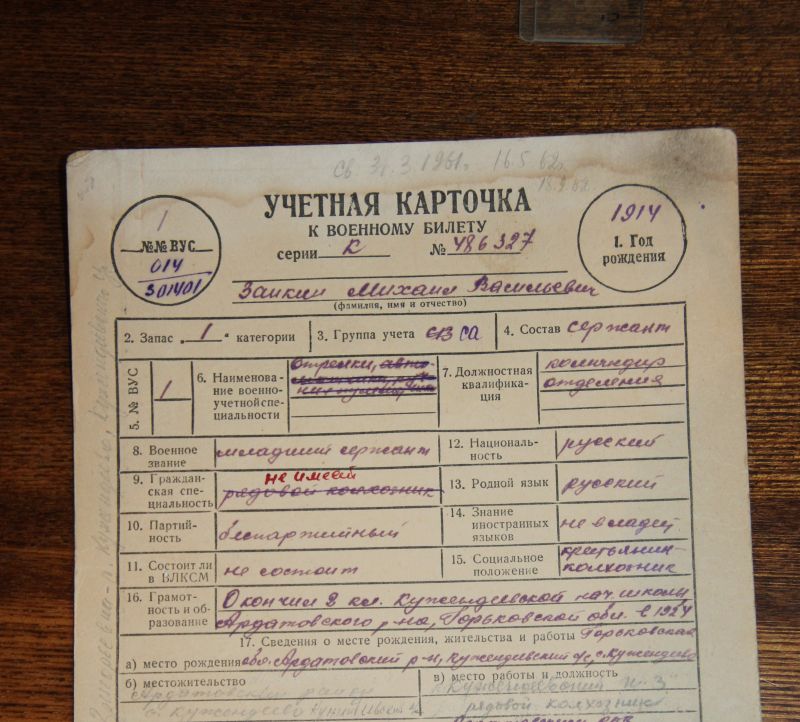 Св 31.3.1961г. 16.5.62г.
18.9.62.
УЧЕТНАЯ КАРТОЧКА
К ВОЕННОМУ БИЛЕТУ
серии К № 486327
1
№№ ВУС
014
301401
1914
1. Год
рождения
Заикин Михаил Васильевич
(фамилия, имя и отчество)
2. Запас „1" категории
3. Группа учета СВ СА
4. Состав сержант
5. № ВУС 1
6. Наименова-
ние военно-
учетной спе-
циальности
Стрелки,
7. Должностная
квалифика-
ция
командир
отделения
8. Военное
звание
младший сержант
12. Националь-
ность
русский
9. Граждан-
ская спе-
циальность
не имеет
рядовой колхозник
13. Родной язык русский
10. Партий-
ность
беспартийный
14. Знание
иностранных
языков
не владеет
11. Состоит ли
в ВЛКСМ
не состоит
15. Социальное
положение
крестьянин-
колхозник
16. Грамот-
ность и об-
разование
Окончил 2 кл. Кужендеевской нач. школы
Ардатовского р-на, Горьковской обл. в 1927
17. Сведения о месте рождения, жительства и работы Горьковская
а) место рождения обл. Ардатовский р-н, Кужендеевский с/с, с. Кужендеево
б) местожительство
Ардатовский район
Кужендеево
в) место работы и должность
Кужендеевский к-з
рядовой колхозник